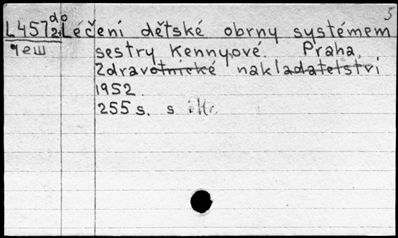 5
L457 do
2.
чеш
Léčení dětské obrny systémem
sestry Kennyové. Praha,
Zdravotnické nakladatelství
1952.
255 s. s